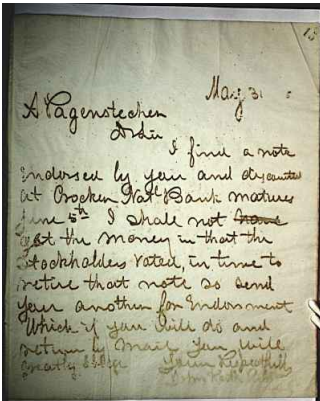 May 31
A Pagenstecher
Dr Sir
I find a note
endorsed by you and discounted
at Crocker Natl Bank matures
June 5th I shall not have
get the money in that the
Stockholders voted, in time to
retire that note so send
you another for Endorsment
Which if you Will do and
return by mail you will
greatly oblige
Yours Respectfully